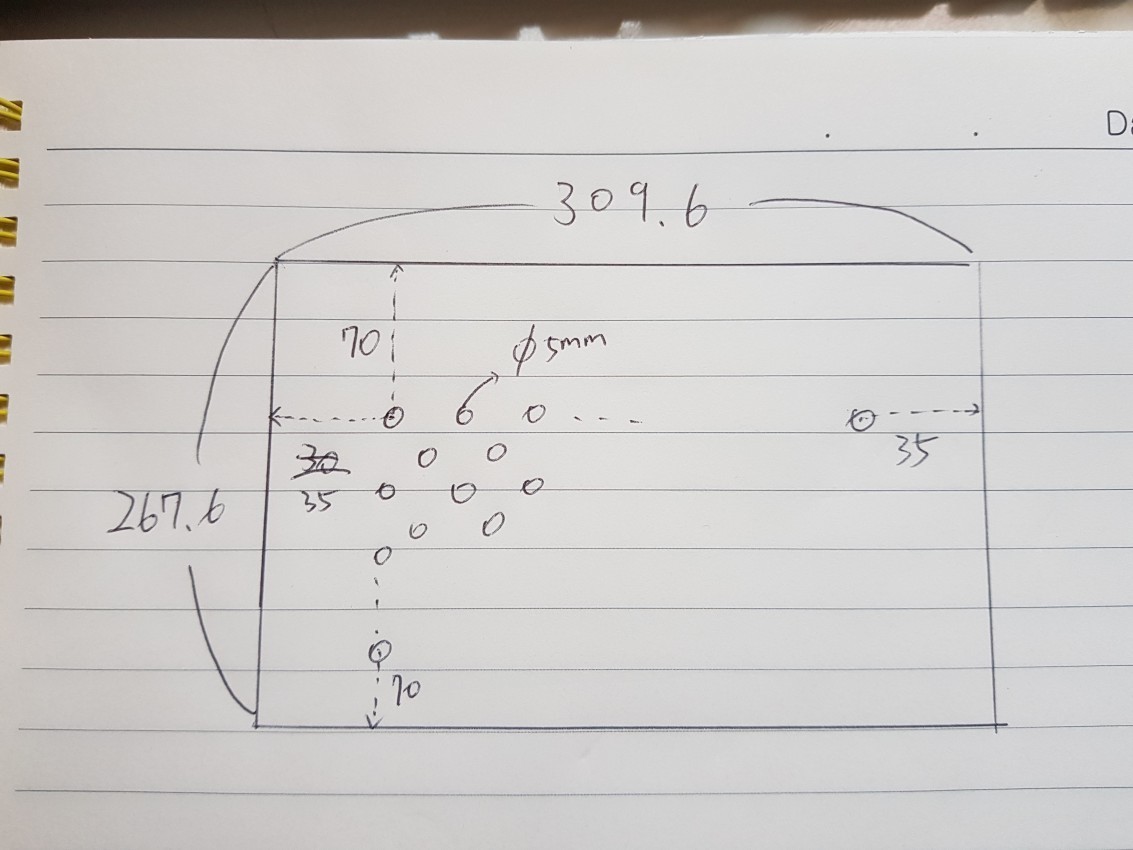 309.6
70
φ5mm
30
35
35
267.6
70